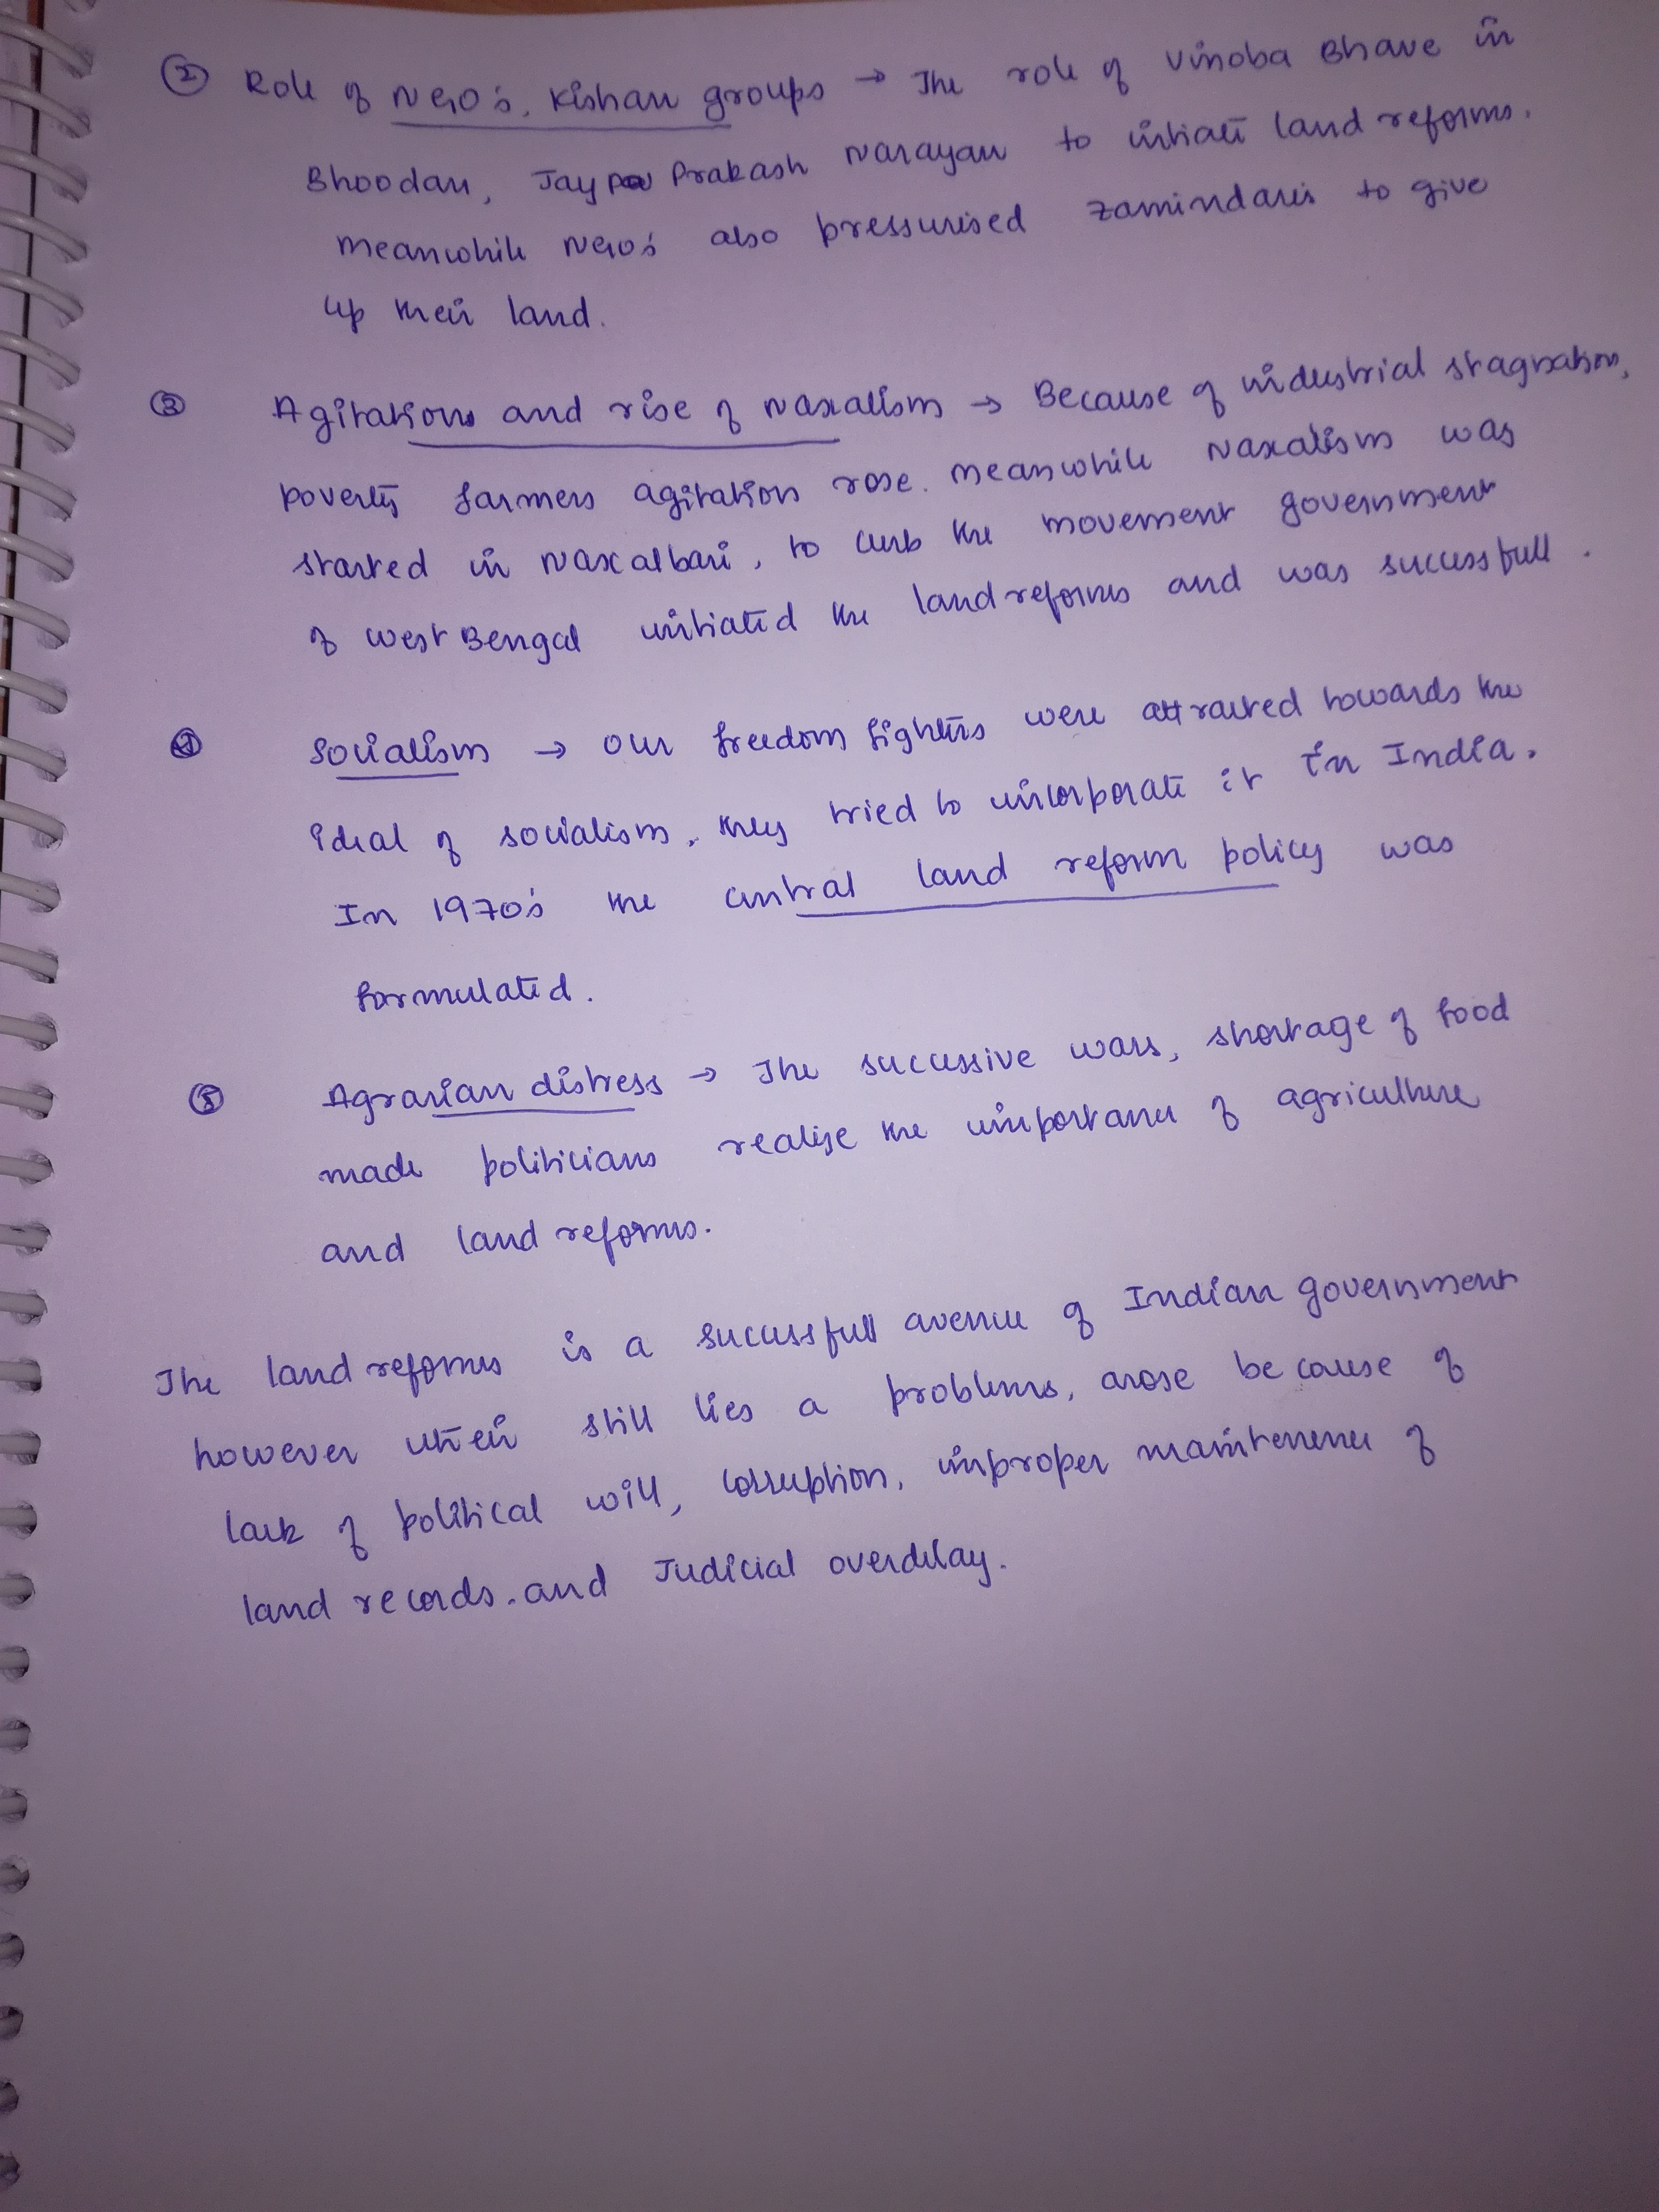 ② Role of NGO's, Kishan groups → The role of Vinoba Bhave in
Bhoodan, Jay Prakash Narayan to initiate land reforms.
Meanwhile NGO's also pressurised zamindaris to give
up their land.
③ Agitations and rise of Naxalism → Because of industrial stagnation,
poverty farmers agitation rose. Meanwhile Naxalism was
started in Naxalbari, to curb the movement government
of West Bengal initiated the land reforms and was successfull.
④ Socialism → Our freedom fighters were attracted towards the
ideal of socialism, they tried to incorporate it in India.
In 1970's the central land reform policy was
formulated.
⑤ Agrarian distress → The successive wars, shortage of food
made politicians realise the importance of agriculture
and land reforms.
The land reforms is a successfull avenue of Indian government
however still lies a problems, arose because of
lack of political will, corruption, improper maintenence of
land records. and Judicial overdelay.